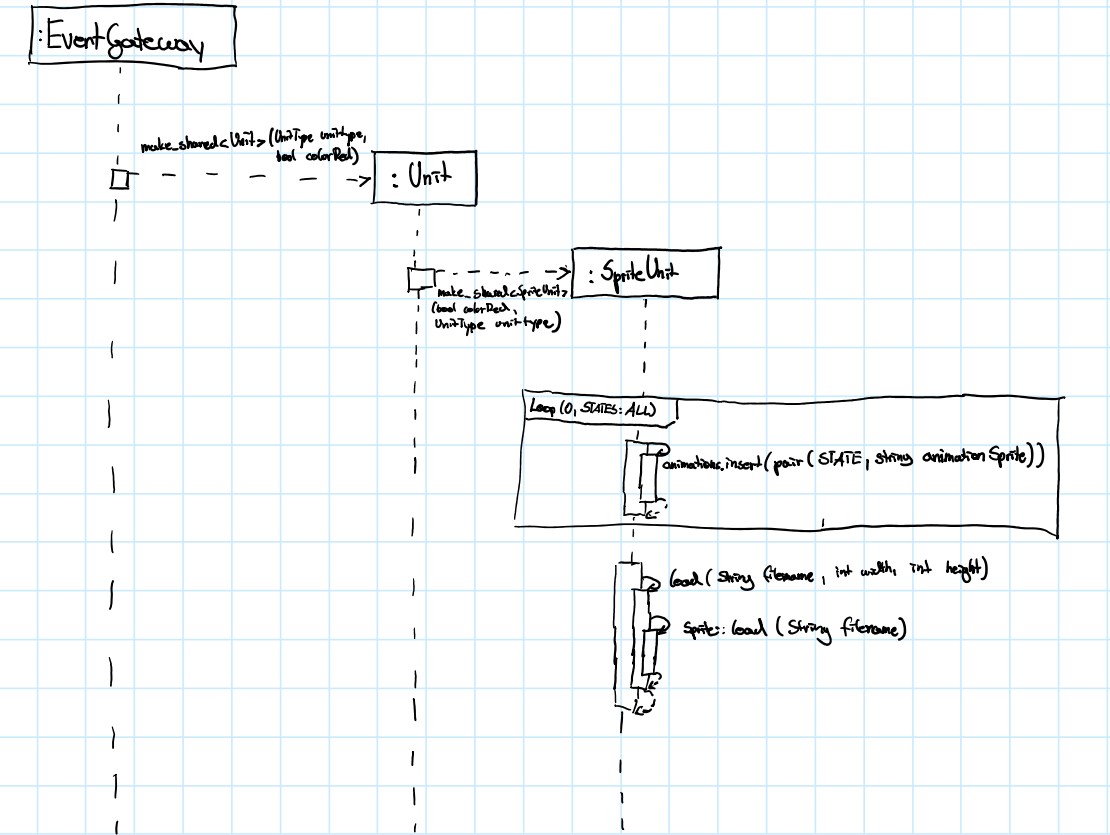 :EventGateway
make_shared<Unit>(UnitType unittype,
bool colorRed)
: Unit
: SpriteUnit
make_shared<SpriteUnit>
(bool colorRed,
UnitType unittype)
Loop (0, STATES::ALL)
animations.insert(pair(STATE, string animationSprite))
load(String filename, int width, int height)
Sprite::load (String filename)